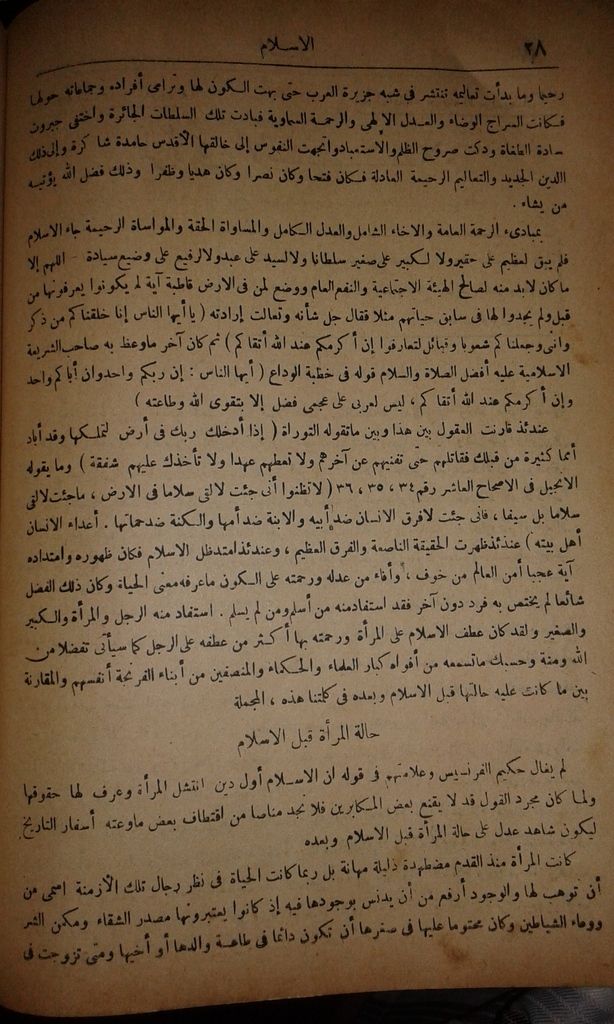 ٢٨
الاسلام
رحيما وما بدأت تعاليمه تنتشر في شبه جزيرة العرب حتى بهت الكون لها وترامى أفراده وجماعاته حولها
فكانت السراج الوضاء والعدل الالهى والرحمة السماوية فبادت تلك السلطات الجائرة واختفى جبروت
سادة الطغاة ودكت صروح الظلم والاستعباد واتجهت النفوس إلى خالقها الأقدس حامدة شاكرة وإلى ذلك
الدين الجديد والتعاليم الرحيمة العادلة فكان فتحا وكان نصرا وكان هديا وظفرا وذلك فضل الله يؤتيه
من يشاء .
بمبادىء الرحمة العامة والاخاء الشامل والعدل الكامل والمساواة الحقة والمواساة الرحيمة جاء الاسلام
فلم يبق لعظيم على حقير ولا لكبير على صغير سلطانا ولا لسيد على عبد ولا لرفيع على وضيع سيادة - اللهم إلا
ما كان لابد منه لصالح الهيئة الاجتماعية والنفع العام ووضع لمن فى الارض قاطبة آية لم يكونوا يعرفونها من
قبل ولم يجدوا لها فى سابق حياتهم مثلا فقال جل شأنه وتعالت إرادته ( يا أيها الناس إنا خلقناكم من ذكر
وانثى وجعلناكم شعوبا وقبائل لتعارفوا إن أكرمكم عند الله أتقاكم ) ثم كان آخر ماوعظ به صاحب الشريعة
الاسلامية عليه أفضل الصلاة والسلام قوله فى خطبة الوداع ( أيها الناس : إن ربكم واحد وان أباكم واحد
وإن أكرمكم عند الله أتقاكم ، ليس لعربى على عجمى فضل إلا بتقوى الله وطاعته )
عندئذ قارنت العقول بين هذا وبين ماتقوله التوراة ( إذا أدخلك ربك فى أرض لتملكها وقد أباد
أمما كثيرة من قبلك فقاتلهم حتى تفنيهم عن آخرهم ولا تعطهم عهدا ولا تأخذك عليهم شفقة ) وما يقوله
الانجيل فى الاصحاح العاشر رقم ٣٤ ، ٣٥ ، ٣٦ ( لاتظنوا أنى جئت لالتى سلاما فى الارض ، ماجئت لالتى
سلاما بل سيفا ، فانى جئت لافرق الانسان ضد أبيه والابنة ضد أمها والكنة ضد حماتها . أعداء الانسان
أهل بيته ) عندئذ ظهرت الحقيقة الناصعة والفرق العظيم ، وعندئذ امتد ظل الاسلام فكان ظهوره وامتداده
آية عجبا أمن العالم من خوف ، وأفاء من عدله ورحمته على الكون ماعرفه معنى الحياة وكان ذلك الفضل
شائعا لم يختص به فرد دون آخر فقد استفاد منه من أسلم ومن لم يسلم . استفاد منه الرجل والمرأة والكبير
والصغير ولقد كان عطف الاسلام على المرأة ورحمته بها أكثر من عطفه على الرجل كما سيأتى تفضلا من
الله ومنة وحسبك ماتسمعه من أفواه كبار العلماء والحكماء والمنصفين من أبناء الفرنجة أنفسهم والمقارنة
بين ما كانت عليه حالتها قبل الاسلام وبعده فى كلمتنا هذه ، المجملة
حالة المرأة قبل الاسلام
لم يغال حكيم الفرنسيس وعلامتهم فى قوله ان الاسلام أول دين انتشل المرأة وعرف لها حقوقها
ولما كان مجرد القول قد لا يقنع بعض المكابرين فلا نجد مناصا من اقتطاف بعض ماوعته أسفار التاريخ
ليكون شاهد عدل على حالة المرأة قبل الاسلام وبعده
كانت المرأة منذ القدم مضطهدة ذليلة مهانة بل ربما كانت الحياة فى نظر رجال تلك الأزمنة اسمى من
أن توهب لها والوجود أرفع من أن يدنس بوجودها فيه إذ كانوا يعتبرونها مصدر الشقاء ومكمن الشر
ووعاء الشياطين وكان محتوما عليها فى صغرها أن تكون دائما فى طاعة والدها أو أخيها ومتى تزوجت فى